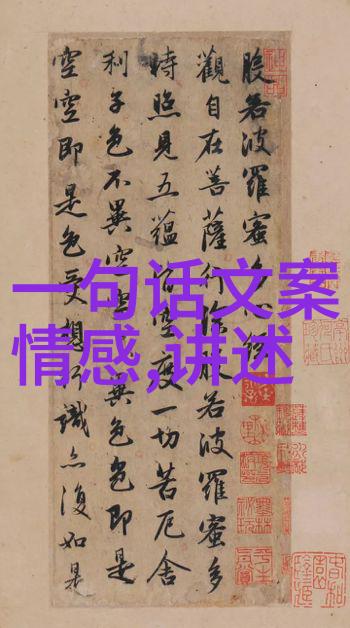 般若波羅蜜多心經
觀自在菩薩行深般若波羅蜜多
時照見五蘊皆空度一切苦厄舍
利子色不異空空不異色色即是
空空即是色受想行識亦復如是
一句话文案
情感,讲述